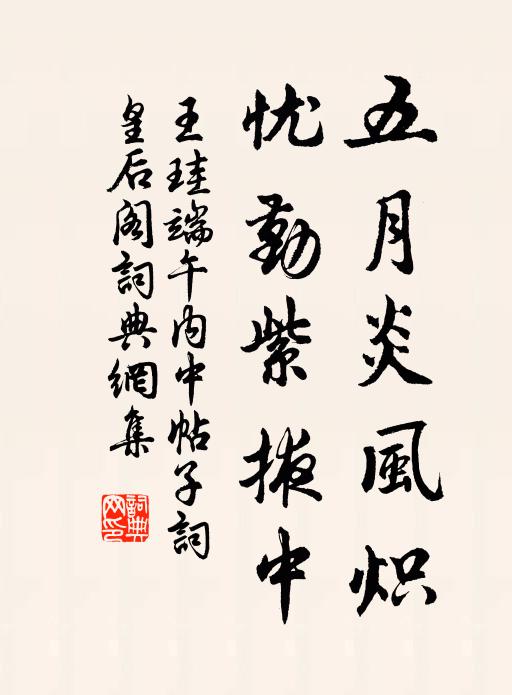 五月炎風炽
忧勤紫掖中
王珪端午内中帖子詞
皇后阁詞典網集
詞典网印